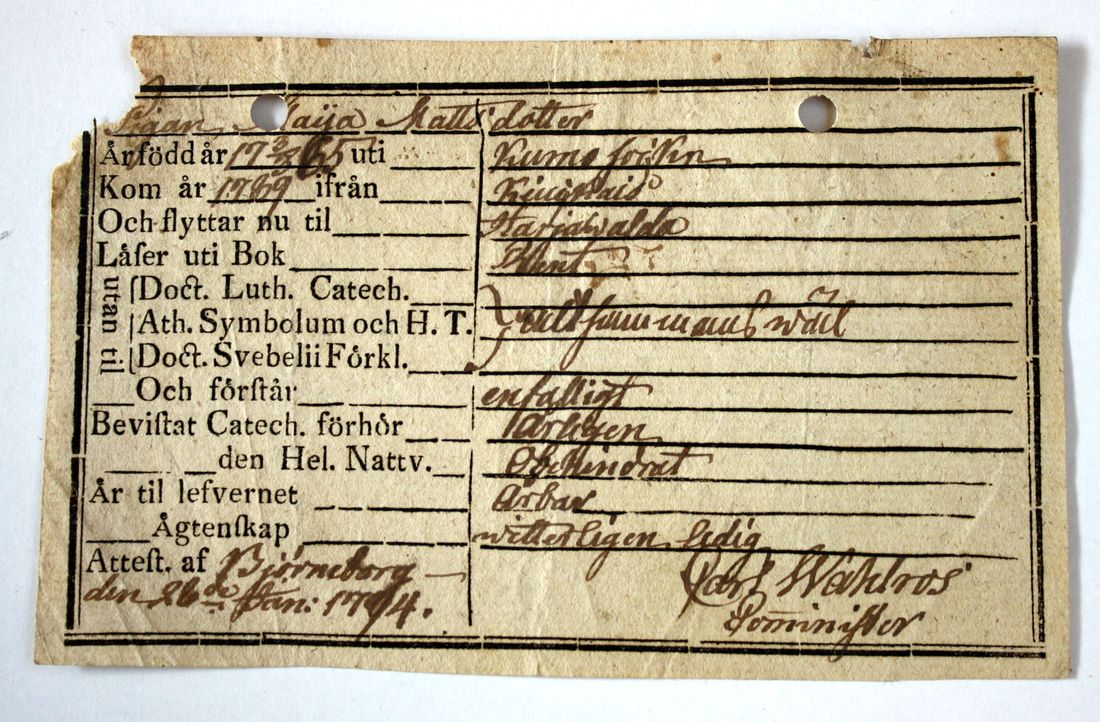 Pigan Maija Matts dotter
År född år 17 3/3 65 uti Kumo sokn
Kom år 1789 ifrån
Och flyttar nu til Harjawalda
Låſer uti Bok Rent
utan til. Doct. Luth. Catech.
Ath. Symbolum och H. T. altsammans wäl
Doct. Svebelii Förkl.
Och förſtår enfalligt
Beviſtat Catech. förhör årligen
den Hel. Nattv. Obehindrat
År til lefvernet Ärbar
Ågtenſkap witterligen ledig
Atteſt. af Björneborg Carl Wahlros
den 26de Jan: 1794. Comminister